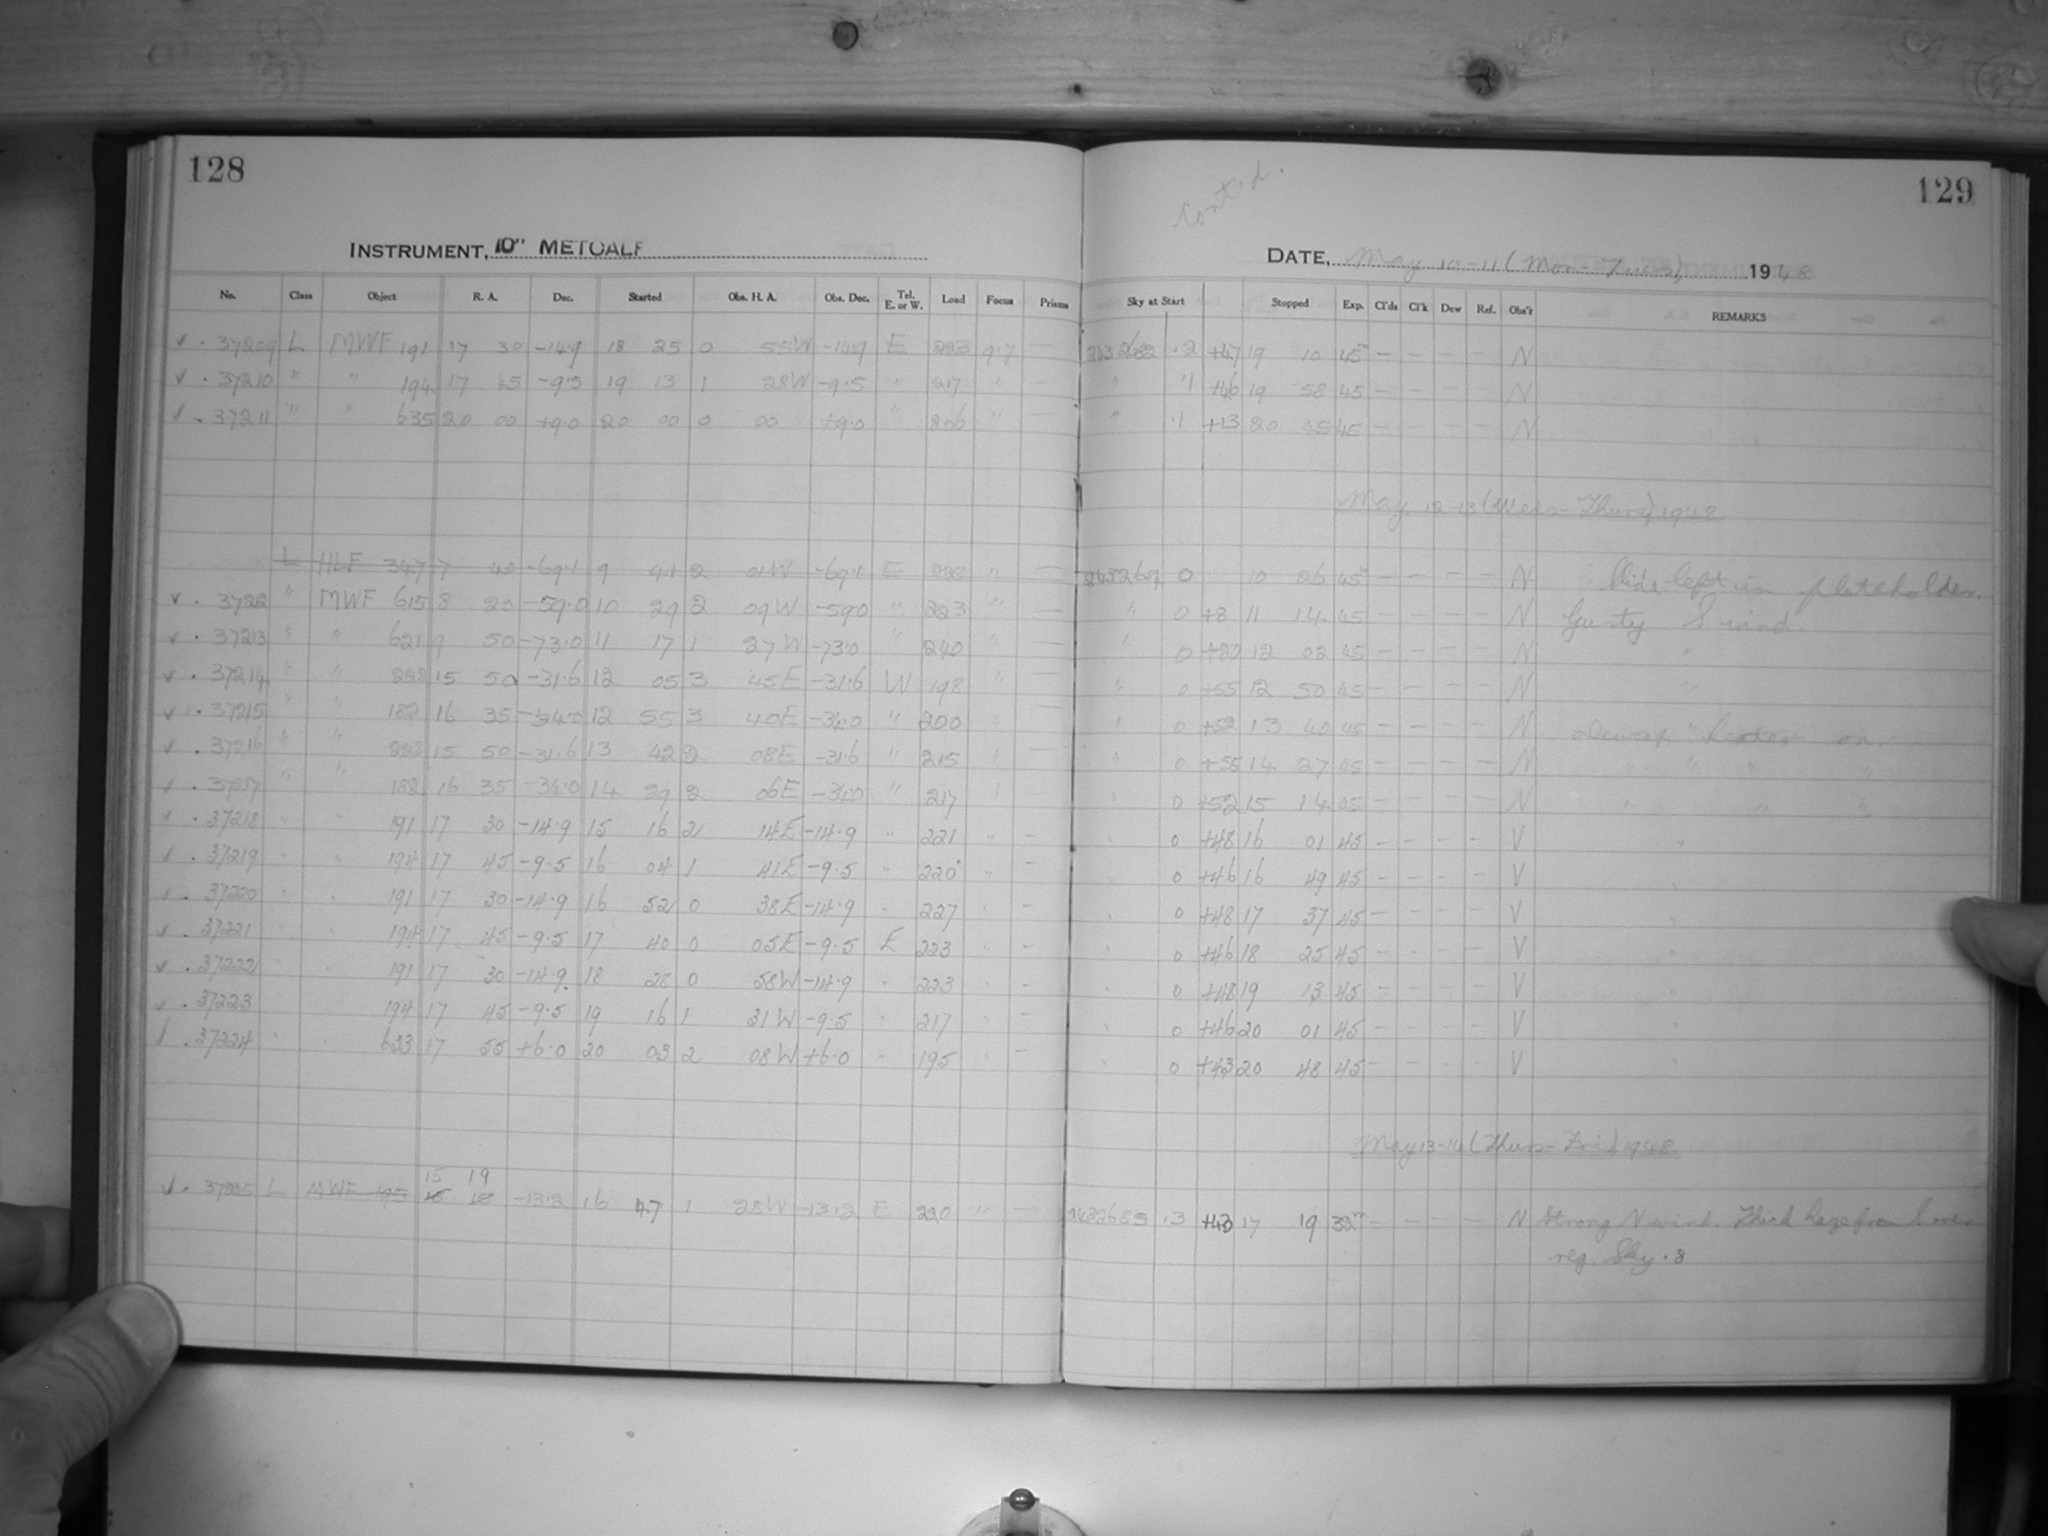 128
INSTRUMENT, 10" METCALF
No. Class Object R. A. Dec. Started Obs. H. A. Obs. Dec. Tel. E. or W. Load Focus Prisms
✓ . 37209 L MWF 191 17 30 -14.9 18 25 0 55W -14.9 E 223 9.7 —
✓ . 37210 " " 194 17 45 -9.5 19 13 1 28W -9.5 " 217 " —
✓ . 37211 " " 635 20 00 +9.0 20 00 0 00 +9.0 " 206 " —
L HLF 347 7 40 -69.1 9 41 2 01W -69.1 E 228 " —
✓ . 3722 " MWF 615 8 20 -59.0 10 29 2 09W -59.0 " 223 " —
✓ . 37213 " " 621 9 50 -73.0 11 17 1 27W -73.0 " 240 " —
✓ . 37214 " " 228 15 50 -31.6 12 05 3 45E -31.6 W 198 "
✓ . 37215 " " 182 16 35 -34.0 12 55 3 40E -34.0 " 200 "
✓ . 37216 " " 228 15 50 -31.6 13 42 2 08E -31.6 " 215 "
✓ . 37217 " " 182 16 35 -34.0 14 29 2 06E -34.0 " 217 "
✓ . 37218 " " 191 17 30 -14.9 15 16 2 14E -14.9 " 221 " -
✓ . 37219 " " 194 17 45 -9.5 16 04 1 41E -9.5 " 220 " -
✓ . 37220 " " 191 17 30 -14.9 16 52 0 38E -14.9 " 227 " -
✓ . 37221 " " 194 17 45 -9.5 17 40 0 05E -9.5 E 223 " -
✓ . 37222 " " 191 17 30 -14.9 18 28 0 58W -14.9 " 223 " -
✓ . 37223 " " 194 17 45 -9.5 19 16 1 31W -9.5 " 217 " -
✓ . 37224 " " 633 17 55 +6.0 20 03 2 08W +6.0 " 195 " -
15 19
✓ . 37225 L MWF 195 15 18 -13.2 16 47 1 28W -13.2 E 220 " —
Cont'd.
129
DATE, May 10-11 (Mon-Tues), 1948
Sky at Start Stopped Exp. Cl'ds Cl'k Dew Ref. Obs'r REMARKS
2432682 .2 +47 19 10 45m - - - - N
" .1 +46 19 58 45 - - - - N
" .1 +13 20 45 45 - - - - N
May 12-13 (Weds-Thurs), 1948
0 10 26 45m - - - - N Slide left in plateholder.
" 0 +8 11 14 45 - - - - N Gusty S wind.
" 0 +20 12 02 45 - - - - N "
" 0 +55 12 50 45 - - - - N "
" 0 +52 13 40 45 - - - - N Dewcap "heater" on.
" 0 +55 14 27 45 - - - - N " " "
" 0 +52 15 14 45 - - - - N " " "
" 0 +48 16 01 45 - - - - V "
" 0 +46 16 49 45 - - - - V
" 0 +48 17 37 45 - - - - V
" 0 +46 18 25 45 - - - - V "
" 0 +48 19 13 45 - - - - V "
" 0 +46 20 01 45 - - - - V "
" 0 +43 20 48 45 - - - - V "
May 13-14 (Thurs-Fri), 1948.
2432685 .3 +43 17 19 32m - - - - N Strong N wind. Thick haze from S over
reg. Sky .8